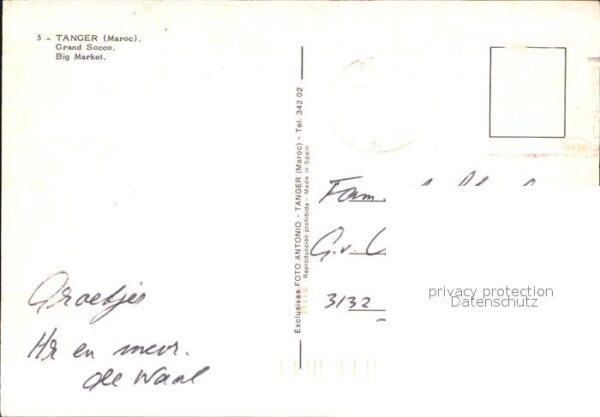 5 - TANGER (Maroc).
Grand Socco.
Big Market.
Exclusivas FOTO ANTONIO - TANGER (Maroc) - Tel. 342 02
Reproducción prohibida - Made in Spain
Fam.
G.v.
3132
privacy protection
Datenschutz
Groetjes
Hr en mevr.
de Waal